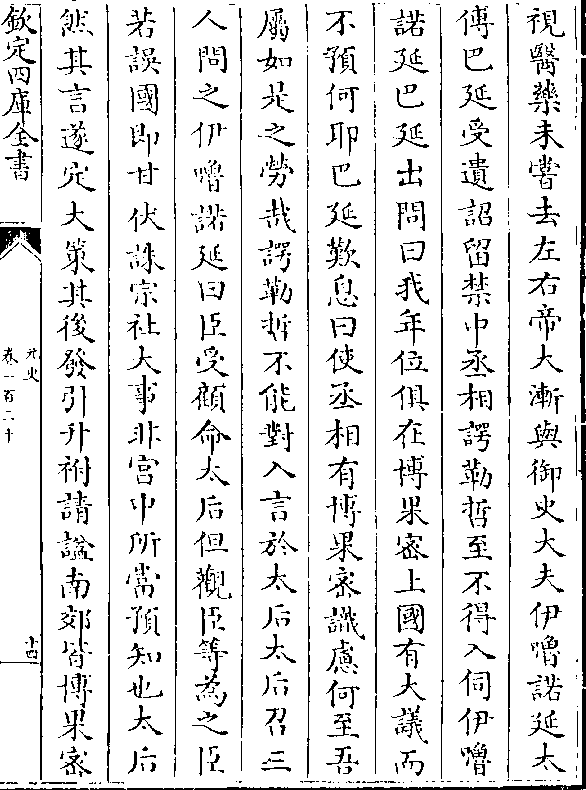 視醫藥未嘗去左右帝大漸與御史大夫伊嚕諾延太
傅巴延受遺詔留禁中丞相諤勒哲至不得入伺伊嚕
諾延巴延出問曰我年位俱在博果密上國有大議而
不預何耶巴延歎息曰使丞相有博果密識慮何至吾
屬如是之勞哉諤勒哲不能對入言於太后太后召三
人問之伊嚕諾延曰臣受顧命太后但觀臣等為之臣
若誤國即甘伏誅宗社大事非宮中所當預知也太后
然其言遂定大策其後發引升祔請諡南郊皆博果密
欽定四庫全書
元史
卷一百三十
十四